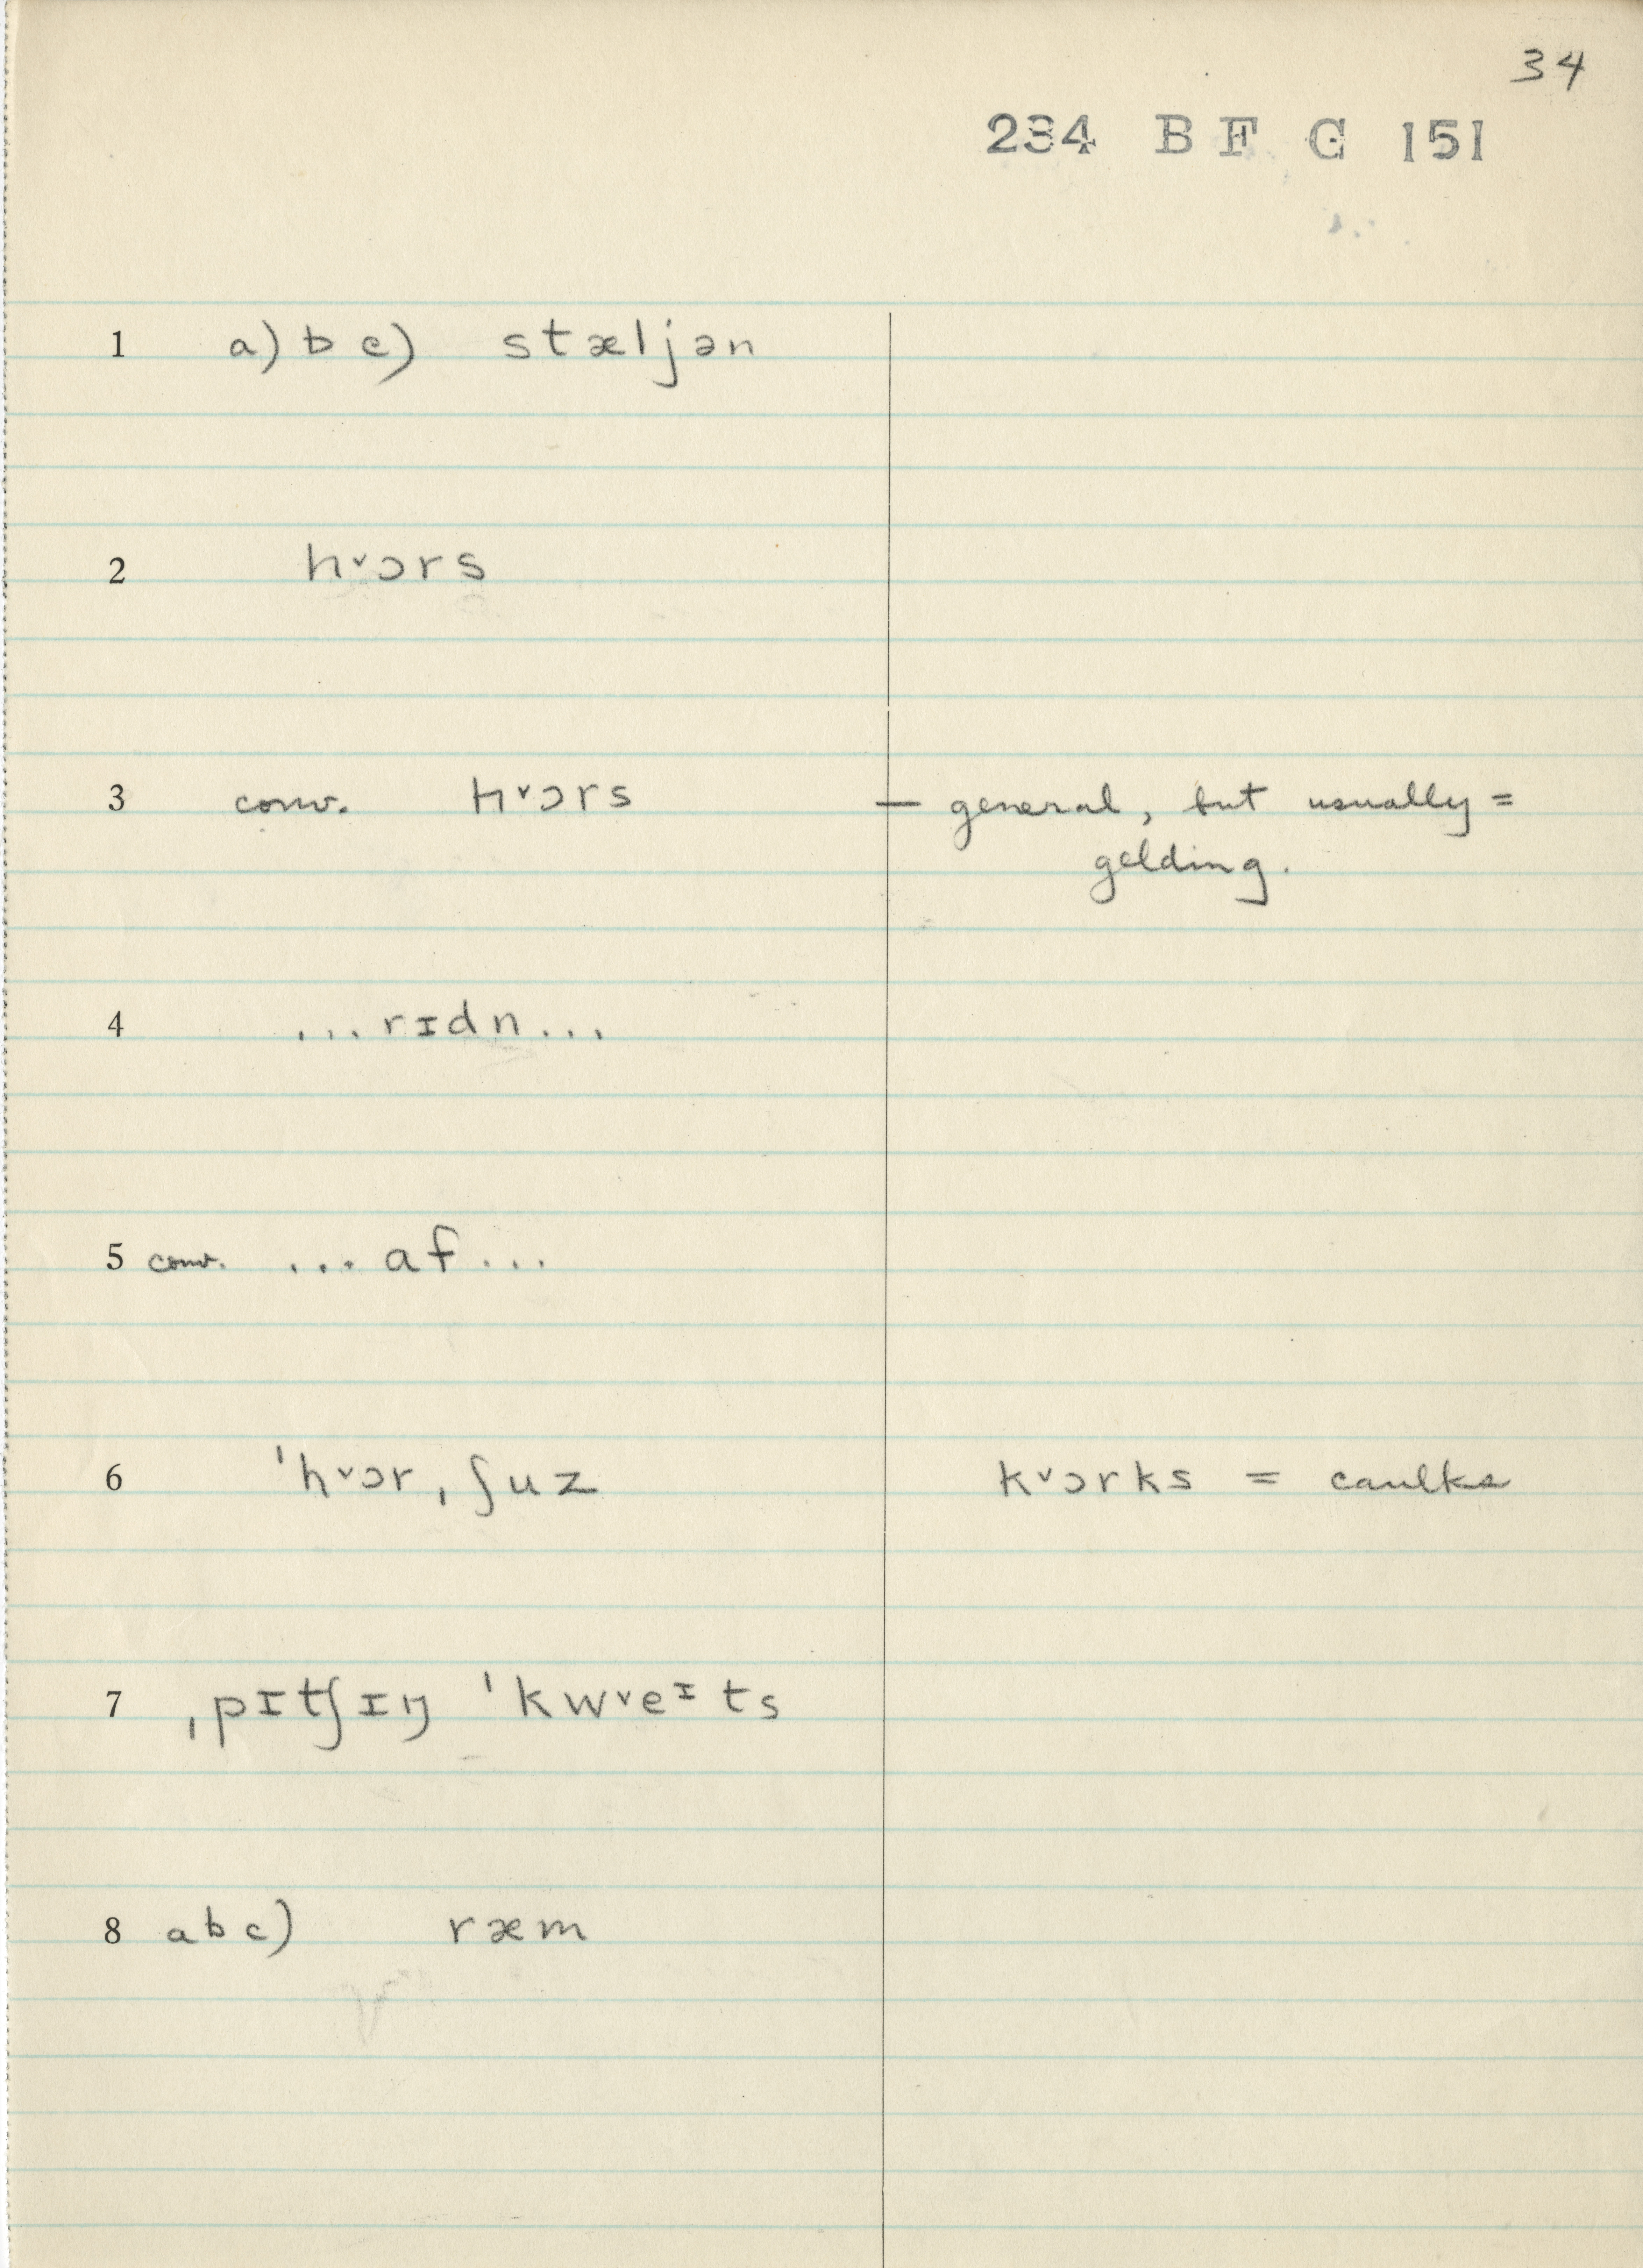 34
234 B F G 151
1 a) b c) stæljən
2 hᵛɔrs
3 conv. hᵛɔrs — general, but usually =
gelding.
4 ...rɪdn...
5 conv. ...af...
6 ˈhᵛɔrˌʃuz kᵛɔrks = caulks
7 ˌpɪtʃɪŋ ˈkwᵛeᶦts
8 a b c) ræm